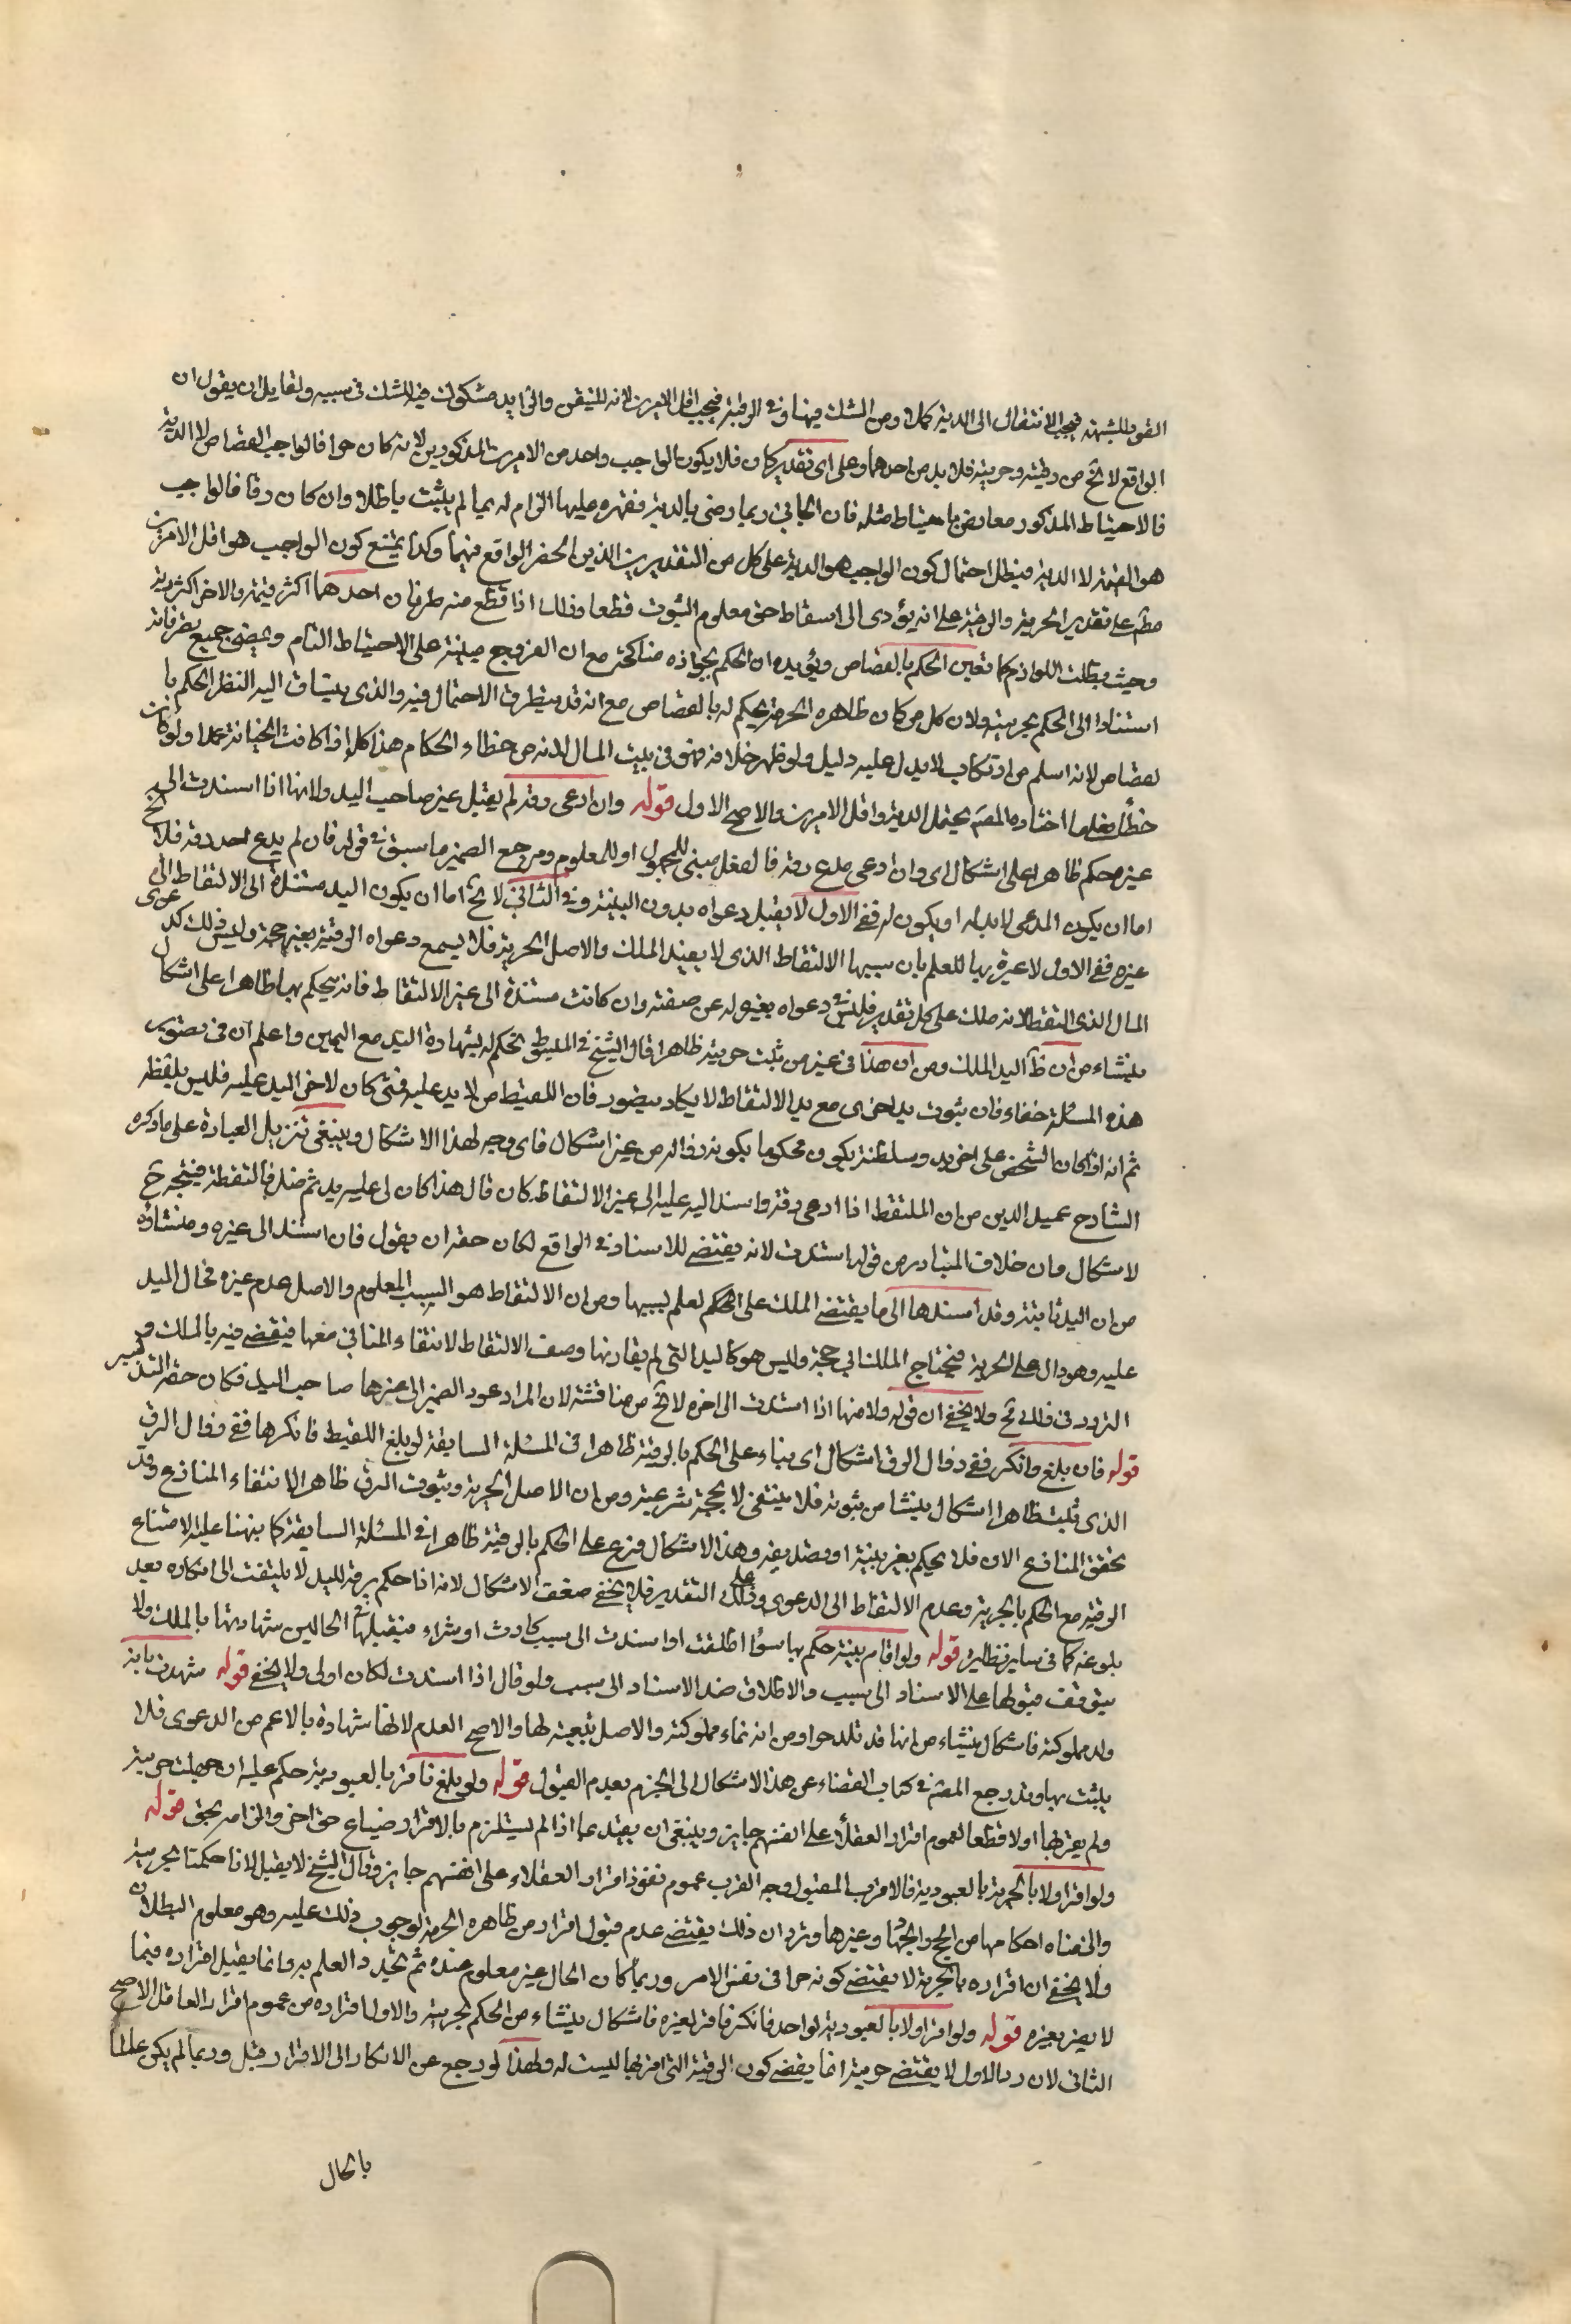 القود للشبهة فيجب الانتقال الى الدية كملا ومن الشك فيها وفي الرقبة فيجب اقل الامرين لانه المتيقن والزايد مشكوك فيه للشك في سببه ولقايل ان يقول ان
الواقع لا يخ من رقيته وحريته فلا بد من احدهما وعلى اى تقدير كان فلا يكون الواجب واحد من الامرين المذكورين لانه كان حرا فالواجب القصاص لا الدية
فالاحتياط المذكور معارض باحتياط مثله فان الجانى ربما رضى بالدية فقهره عليها الزام له بما لم يثبت باطلا وان كان رقا فالواجب
هو القيمة لا الدية فيبطل احتمال كون الواجب هو الدية على كل من التقديرين الذين انحصر الواقع فيهما وكذا يمتنع كون الواجب هو اقل الامرين
مطم على تقدير الحرية والرقية على انه يؤدى الى اسقاط حق معلوم الثبوت قطعا وذلك اذا قطع منه طرفان احدهما اكثر قيمة والاخر اكثر دية
وحيث بطلت اللوازم كلها تعين الحكم بالقصاص ويؤيده ان الحكم بجواز مناكحته مع ان الفروج مبنية على الاحتياط التام ويمضى جميع تصرفاته
استنادا الى الحكم بحريته ولان كل من كان ظاهره الحرية يحكم له بالقصاص مع انه قد يتطرق الاحتمال فيه والذى ينساق اليه النظر الحكم با
لقصاص لانه اسلم من ارتكاب لا يدل عليه دليل ولو ظهر خلافه فهو في بيت المال لانه من خطاء الحكام هذا كله اذا كانت الجناية عمدا ولو كانت
خطأ فعلى ما اختاره المصم يحتمل الدية واقل الامرين والاصح الاول قوله وان ادعى رقه لم يقبل غير صاحب اليد ولا منها اذا استندت الى
غيره حكم ظاهرا على اشكال اى وان ادعى مدع رقه فالفعل مبنى للمجهول او للمعلوم ومرجع الضمير ما سبق في قوله فان لم يدع احد رقه فلا يخ
اما ان يكون المدعى لا يد له او يكون له ففى الاول لا يقبل دعواه بدون البينة وفي الثانى لا يخ اما ان يكون اليد مستندة الى الالتقاط او الى
غيره ففى الاول لا عبرة بها للعلم بان سببها الالتقاط الذى لا يفيد الملك والاصل الحرية فلا يسمع دعواه الرقية بغير حجة وليس ذلك كدعوى
المال الذى التقطه لانه ملك على كل تقدير فليس في دعواه تغيير له عن صفته وان كانت مستندة الى غير الالتقاط فانه يحكم بها ظاهرا على اشكال
ينشاء من ان ظ اليد الملك ومن ان هذا في غير من ثبت حريته ظاهرا قال الشيخ في المبسوط يحكم له بشهادة اليد مع اليمين واعلم ان في تصوير
هذه المسئلة خفاء فان ثبوت يد اخرى مع يد الالتقاط لا يكاد يتصور فان اللقيط من لا يد عليه فمتى كان لاخر اليد عليه فليس بلقيط
ثم انه اذا كان لشخص على اخر يد وسلطنة يكون محكوما بكونه رقا له من غير اشكال فاى وجه لهذا الاشكال وينبغى تنزيل العبارة على ما ذكره
الشارح عميد الدين من ان الملتقط اذا ادعى رقه واسند اليد عليه الى غير الالتقاط كان قال هذا كان لى عليه يد ثم ضل فالتقطته فيتجه ح
لاشكال وان خلاف المتبادر من قوله استندت لانه يقتضى للاسناد في الواقع لكان حقه ان يقول فان اسند الى غيره ومنشاؤه
من ان اليد ثابتة وقد اسندها الى ما يقتضى الملك على الحكم لعلم لسببها ومن ان الالتقاط هو السبب المعلوم والاصل عدم غيره فحال اليد
عليه وهو دال على الحرية فيحتاج الملك الى حجة وليس هو كاليد التى لم يقارنها وصف الالتقاط لانتفاء المنافى معها فيقضى فيه بالملك و
التردد في ذلك تح ولا يخفى ان قوله ولا منها اذا استندت الى اخره لا يخ من مناقشة لان المراد عود الضمير الى غيرها صاحب اليد فكان حقه التذكير
قوله فان بلغ وانكر ففى زوال الرق اشكال اى بناء على الحكم بالرقية ظاهرا في المسئلة السابقة لو بلغ اللقيط فانكرها ففى زوال الرق
الذى ثبت ظاهرا اشكال ينشا من ثبوته فلا ينتفى الا بحجة شرعية ومن ان الاصل الحرية وثبوت الرق ظاهرا لانتفاء المنازع وقد
تحقق المنازع الان فلا يحكم بغير بينة او تصديقه وهذا الاشكال فرع على الحكم بالرقية ظاهرا في المسئلة السابقة كما نبهنا عليه لامتناع
الرقية مع الحكم بالحرية وعدم الالتقاط الى الدعوى وعلى ذلك التقدير فلا يخفى ضعف الاشكال لانه اذا حكم برقه لليد لا يلتفت الى انكاره بعد
بلوغه كما في ساير نظايره قوله ولو اقام بينة حكم بها سواء اطلقت او اسندت الى سبب كارث او شراء فيقبلها في الحالين شهادتها بالملك ولا
يتوقف قبولها على الاسناد الى سبب والاطلاق ضد الاسناد الى سبب ولو قال اذا اسندت لكان اولى ولا يخفى قوله شهدت بانه
ولد مملوكته فاشكال ينشاء من انها قد تلد حرا ومن انه نماء مملوكته والاصل تبعيته لها والاصح العدم لانها شهادة بالاعم من الدعوى فلا
يثبت بها وقد رجع المصم في كتاب القضاء عن هذا الاشكال الى الجزم بعدم القبول قوله ولو بلغ فاقر بالعبودية حكم عليه ان جهلت حريته
ولم يعترف بها اولا قطعا لعموم اقرار العقلاء على انفسهم جايز وينبغى ان يقيد بما اذا لم يستلزم بالاقرار ضياع حق اخر والزامه بحق قوله
ولو اقر اولا بالحرية بالعبودية فالاقرب القبول وجه القرب عموم نفوذ اقرار العقلاء على انفسهم جايز وقال الشيخ لا يقبل لانا حكمنا بحريته
والزمناه احكامها من الحج والجهاد وغيرها وترد ان ذلك يقتضى عدم قبول اقرار من ظاهره الحرية لوجوب ذلك عليه وهو معلوم البطلان
ولا يخفى ان اقراره بالحرية لا يقتضى كونه حرا في نفس الامر وربما كان الحال غير معلوم عنده ثم تجدد العلم به وانما يقبل اقراره فيما
لا يضر بغيره قوله ولو اقر اولا بالعبودية لواحد فانكر فاقر لغيره فاشكال ينشاء من الحكم بحريته والاول اقراره من عموم اقرار العاقل الاصح
الثانى لان رد الاول لا يقتضى حريته انما يقتضى كون الرقية التى اقر بها ليست له ولهذا لو رجع عن الانكار الى الاقرار قبل وربما لم يكن عالما
بالحال